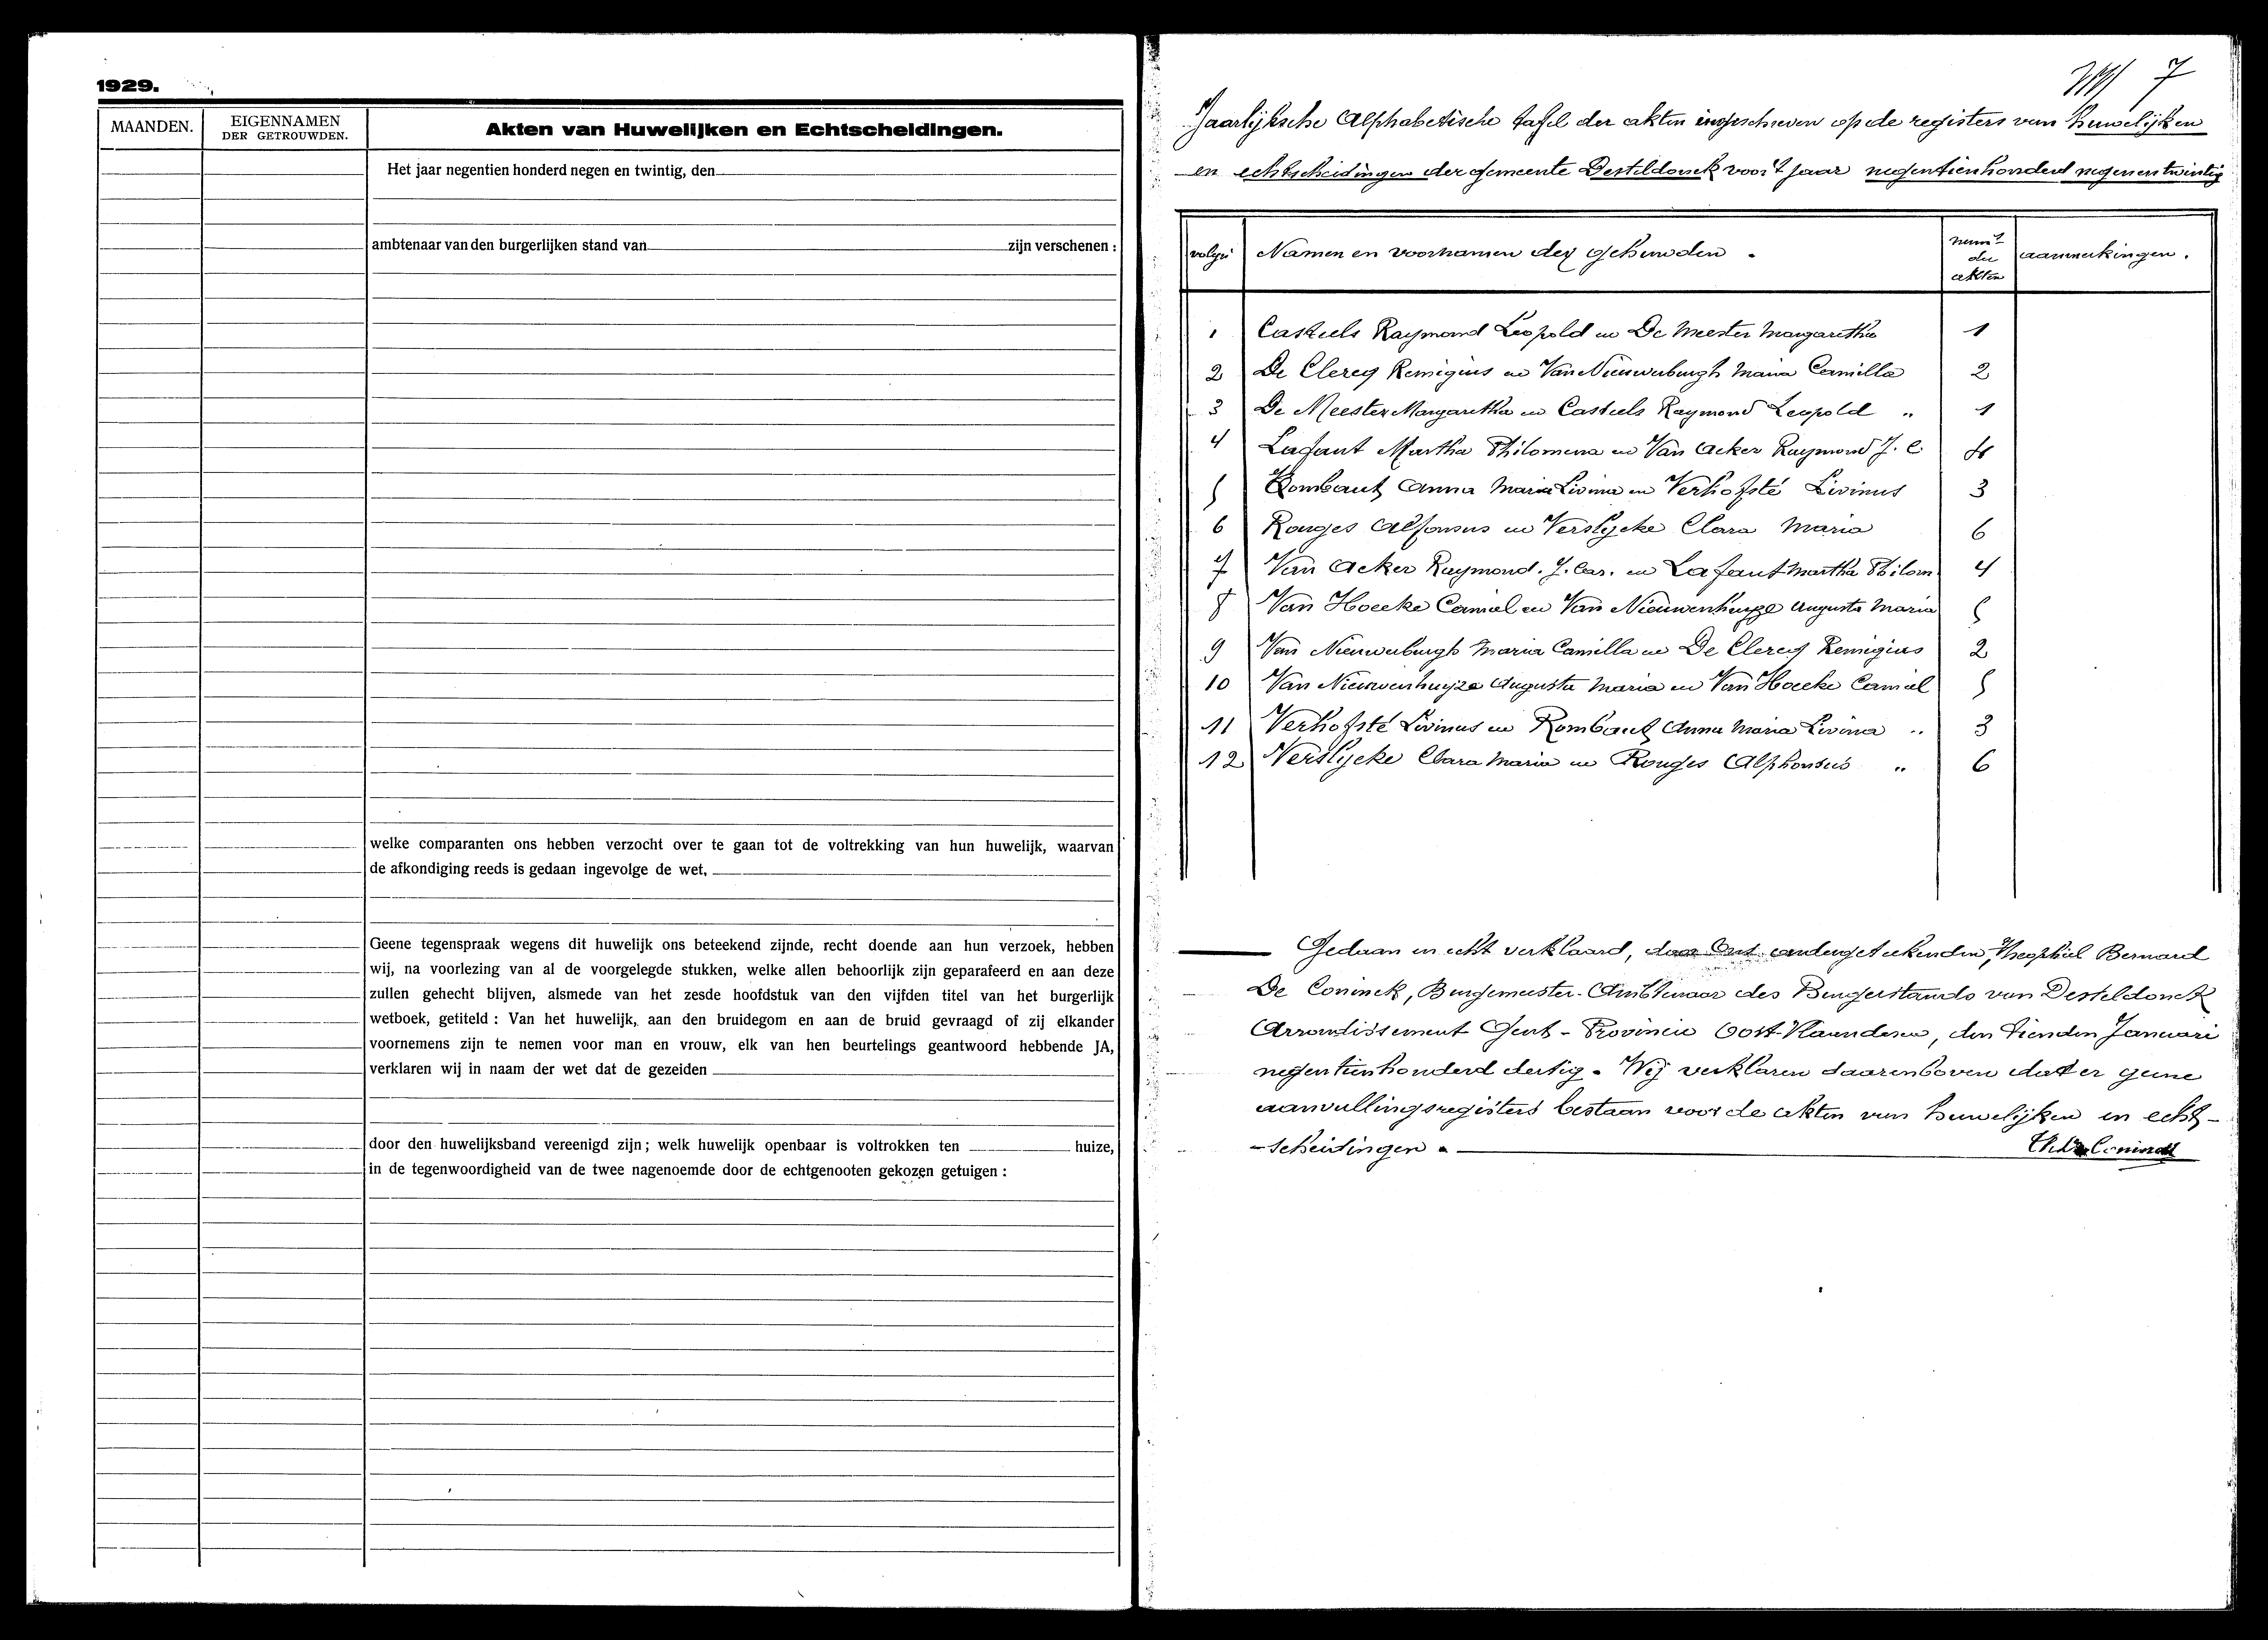 1929.
MAANDEN.
EIGENNAMEN
DER GETROUWDEN.
Akten van Huwelijken en Echtscheidingen.
Het jaar negentien honderd negen en twintig, den
ambtenaar van den burgerlijken stand van zijn verschenen :
welke comparanten ons hebben verzocht over te gaan tot de voltrekking van hun huwelijk, waarvan
de afkondiging reeds is gedaan ingevolge de wet,
Geene tegenspraak wegens dit huwelijk ons beteekend zijnde, recht doende aan hun verzoek, hebben
wij, na voorlezing van al de voorgelegde stukken, welke allen behoorlijk zijn geparafeerd en aan deze
zullen gehecht blijven, alsmede van het zesde hoofdstuk van den vijfden titel van het burgerlijk
wetboek, getiteld : Van het huwelijk, aan den bruidegom en aan de bruid gevraagd of zij elkander
voornemens zijn te nemen voor man en vrouw, elk van hen beurtelings geantwoord hebbende JA,
verklaren wij in naam der wet dat de gezeiden
door den huwelijksband vereenigd zijn ; welk huwelijk openbaar is voltrokken ten huize,
in de tegenwoordigheid van de twee nagenoemde door de echtgenooten gekozen getuigen :
7
Jaarlijksche Alphabetische tafel der akten ingeschreven op de registers van huwelijken
en echtscheidingen der gemeente Desteldonck voor 't jaar negentienhonderd negenentwintig
Namen en voornamen der gehuwden .
der
akten
aanmerkingen .
1 Casteels Raymond Leopold en De Meester Margaretha 1
2 De Clercq Remigius en Van Nieuwerburgh Maria Camilla 2
3 De Meester Margaretha en Casteels Raymond Leopold " 1
4 Lafaut Martha Philomena en Van Acker Raymond J. C. 4
5 Rombaut Anna Maria Livina en Verhofsté Livinus 3
6 Ronges Alfonsus en Verslycke Clara Maria 6
7 Van Acker Raymond. J. Car. en Lafaut Martha Philom 4
8 Van Hoecke Camiel en Van Nieuwenhuyze Augusta Maria 5
9 Van Nieuwerburgh Maria Camilla en De Clercq Remigius 2
10 Van Nieuwenhuyze Augusta Maria en Van Hoecke Camiel 5
11 Verhofsté Livinus en Rombaut Anna Maria Livina " 3
12 Verslycke Clara Maria en Ronges Alphonsus " 6
Gedaan en echt verklaard, door Ons ondergeteekenden, Theophiel Bernard
De Coninck, Burgemeester-Ambtenaar des Burgerstands van Desteldonck
Arrondissement Gent - Provincie Oost-Vlaanderen, den tienden Januari
negentienhonderd dertig . Wij verklaren daarenboven dat er geene
aanvullingsregisters bestaan voor de akten van huwelijken en echt-
-scheidingen . De Coninck